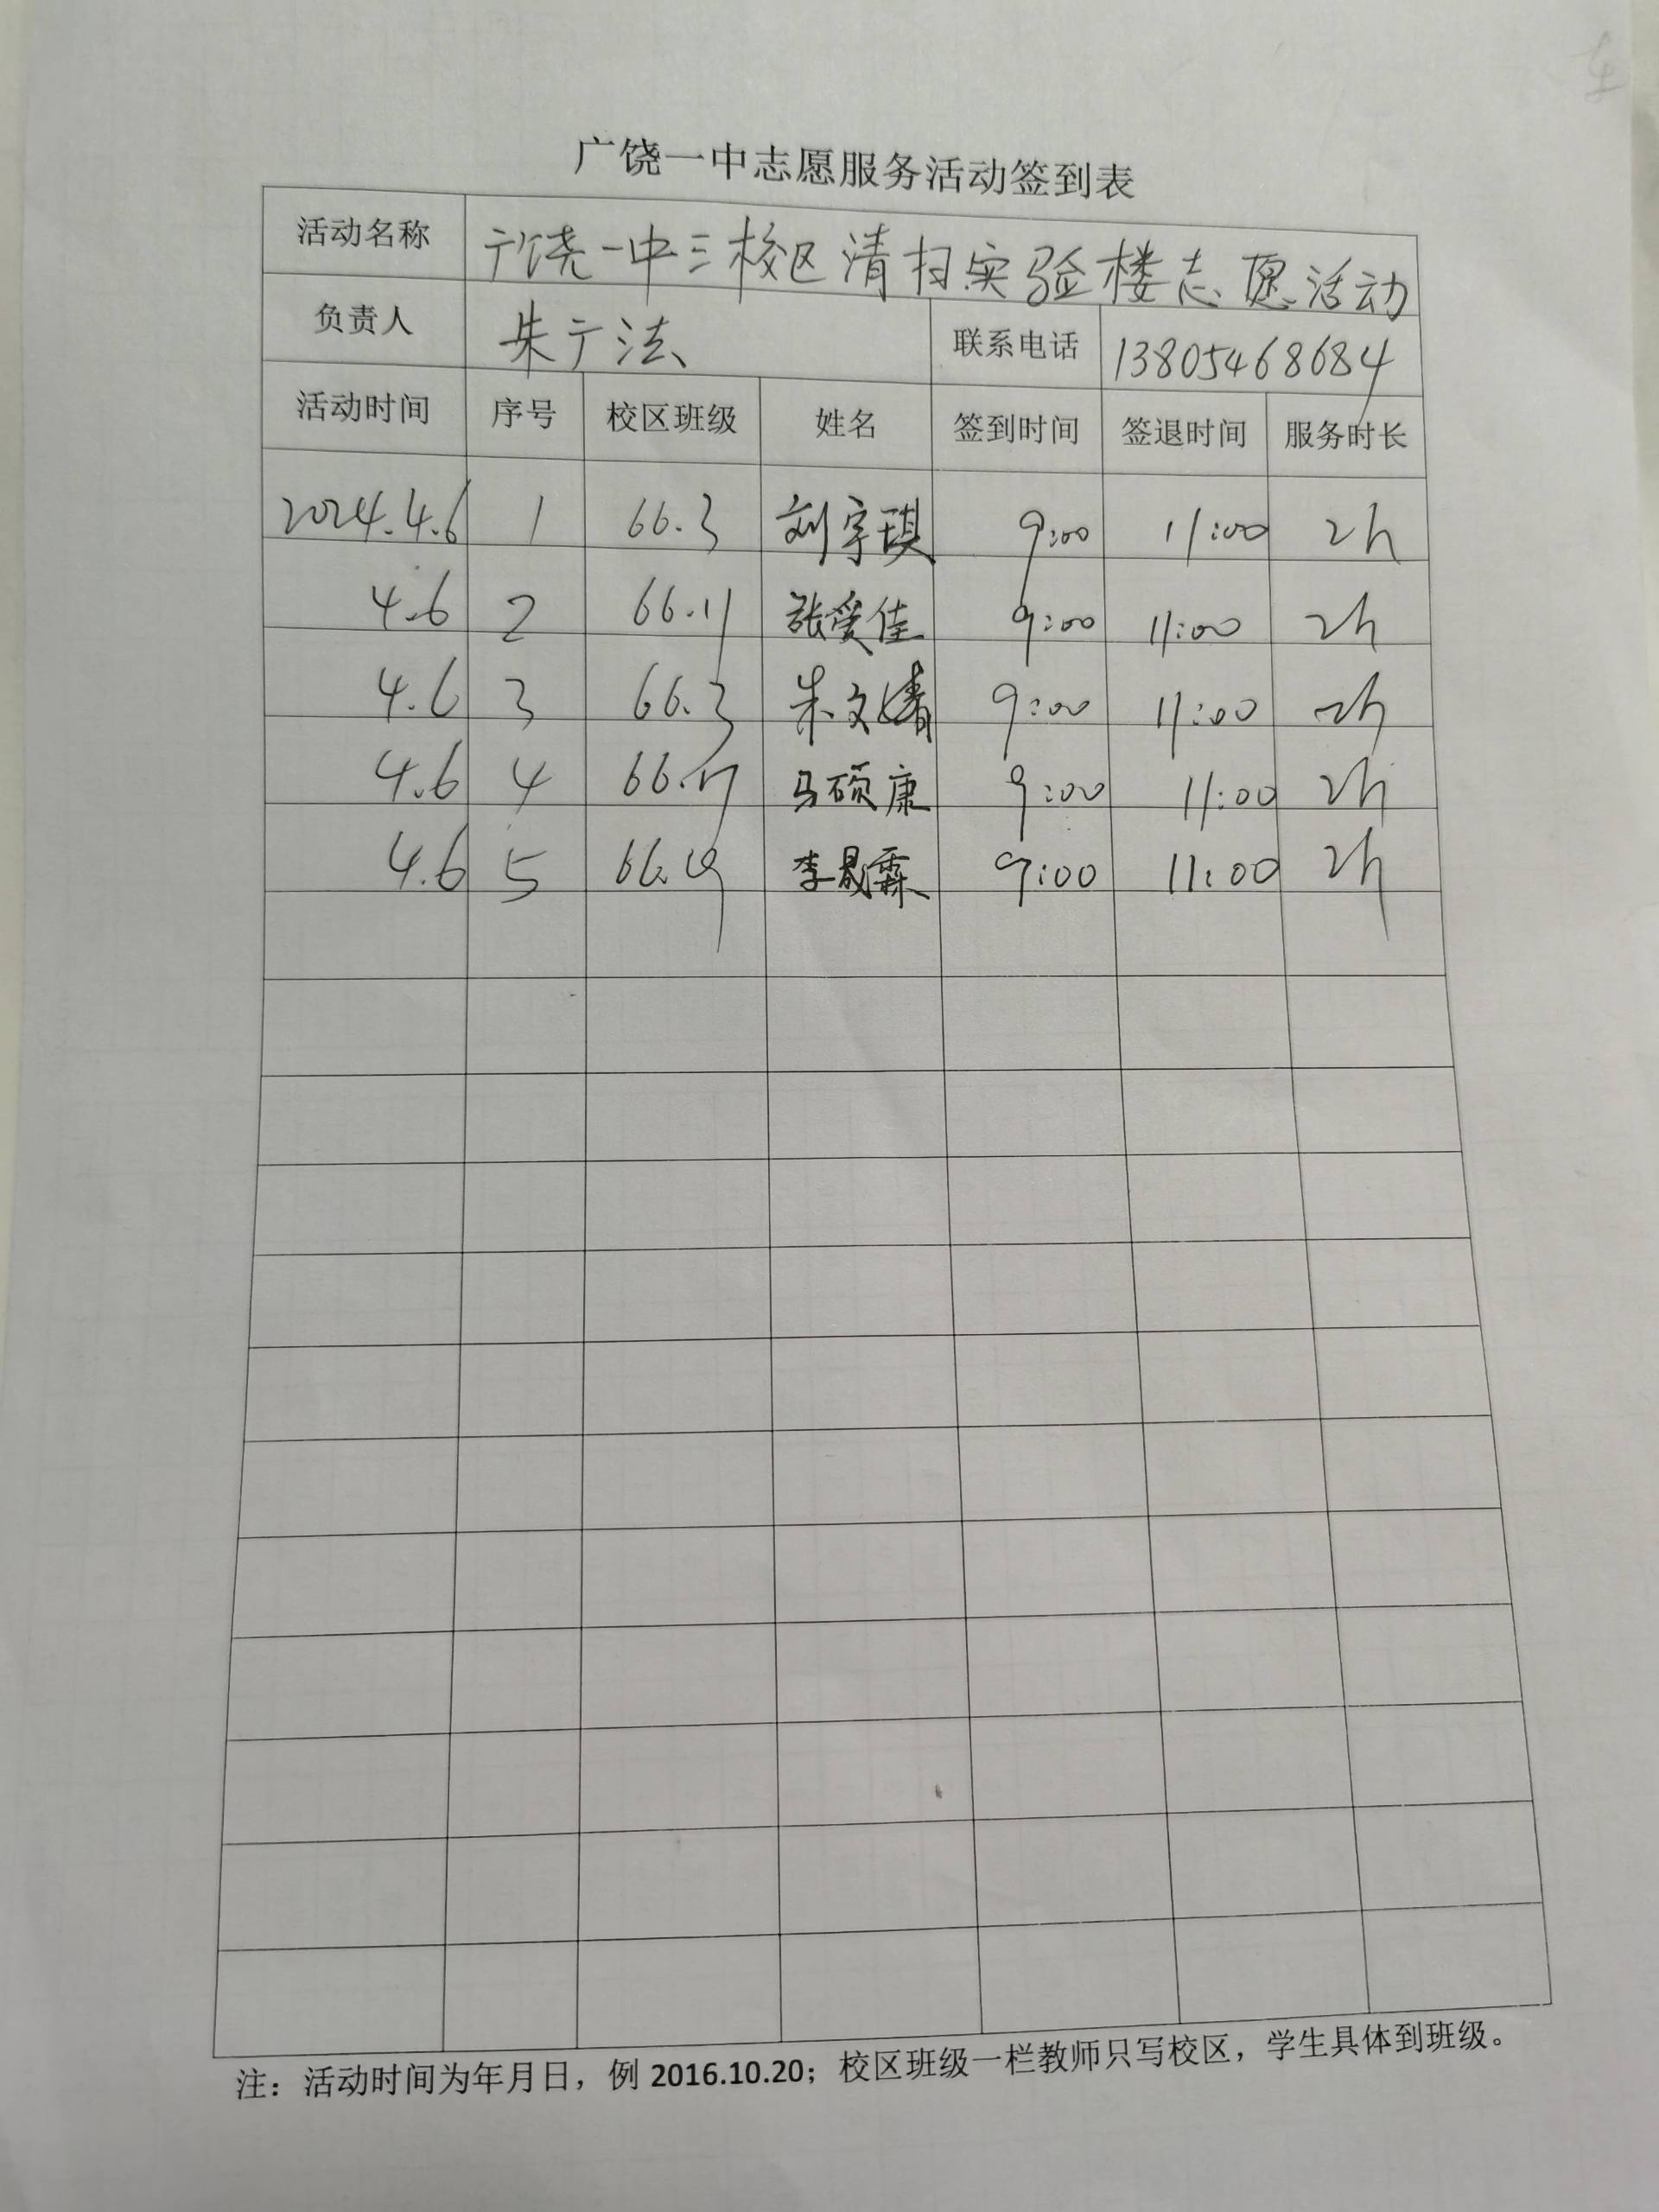 广饶一中志愿服务活动签到表
活动名称 广饶一中三校区清扫实验楼志愿活动
负责人 朱广法 联系电话 13805468684
活动时间 序号 校区班级 姓名 签到时间 签退时间 服务时长
2024.4.6 1 66.3 刘宇琪 9:00 11:00 2h
4.6 2 66.11 张爱佳 9:00 11:00 2h
4.6 3 66.3 朱文婧 9:00 11:00 2h
4.6 4 66.17 马硕康 9:00 11:00 2h
4.6 5 66.19 李晟霖 9:00 11:00 2h
注：活动时间为年月日，例 2016.10.20；校区班级一栏教师只写校区，学生具体到班级。